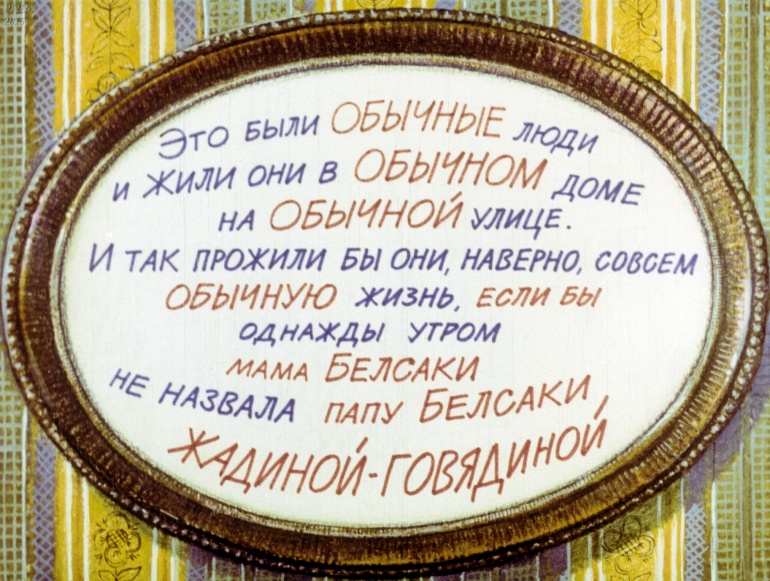 Это были ОБЫЧНЫЕ люди
и жили они в ОБЫЧНОМ доме
на ОБЫЧНОЙ улице.
И так прожили бы они, наверно, совсем
ОБЫЧНУЮ жизнь, если бы
однажды утром
мама Белсаки
не назвала папу Белсаки
ЖАДИНОЙ-ГОВЯДИНОЙ